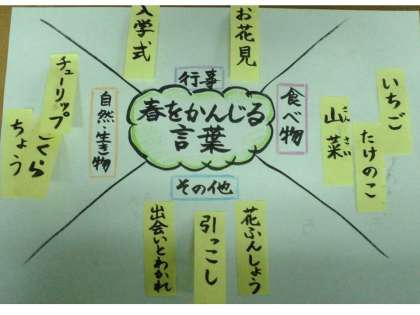 入学式
お花見
行事
春をかんじる
言葉
自然・生き物
チューリップ
さくら
ちょう
食べ物
いちご
たけのこ
さんさい
山菜
その他
出会いとわかれ
引っこし
花ふんしょう